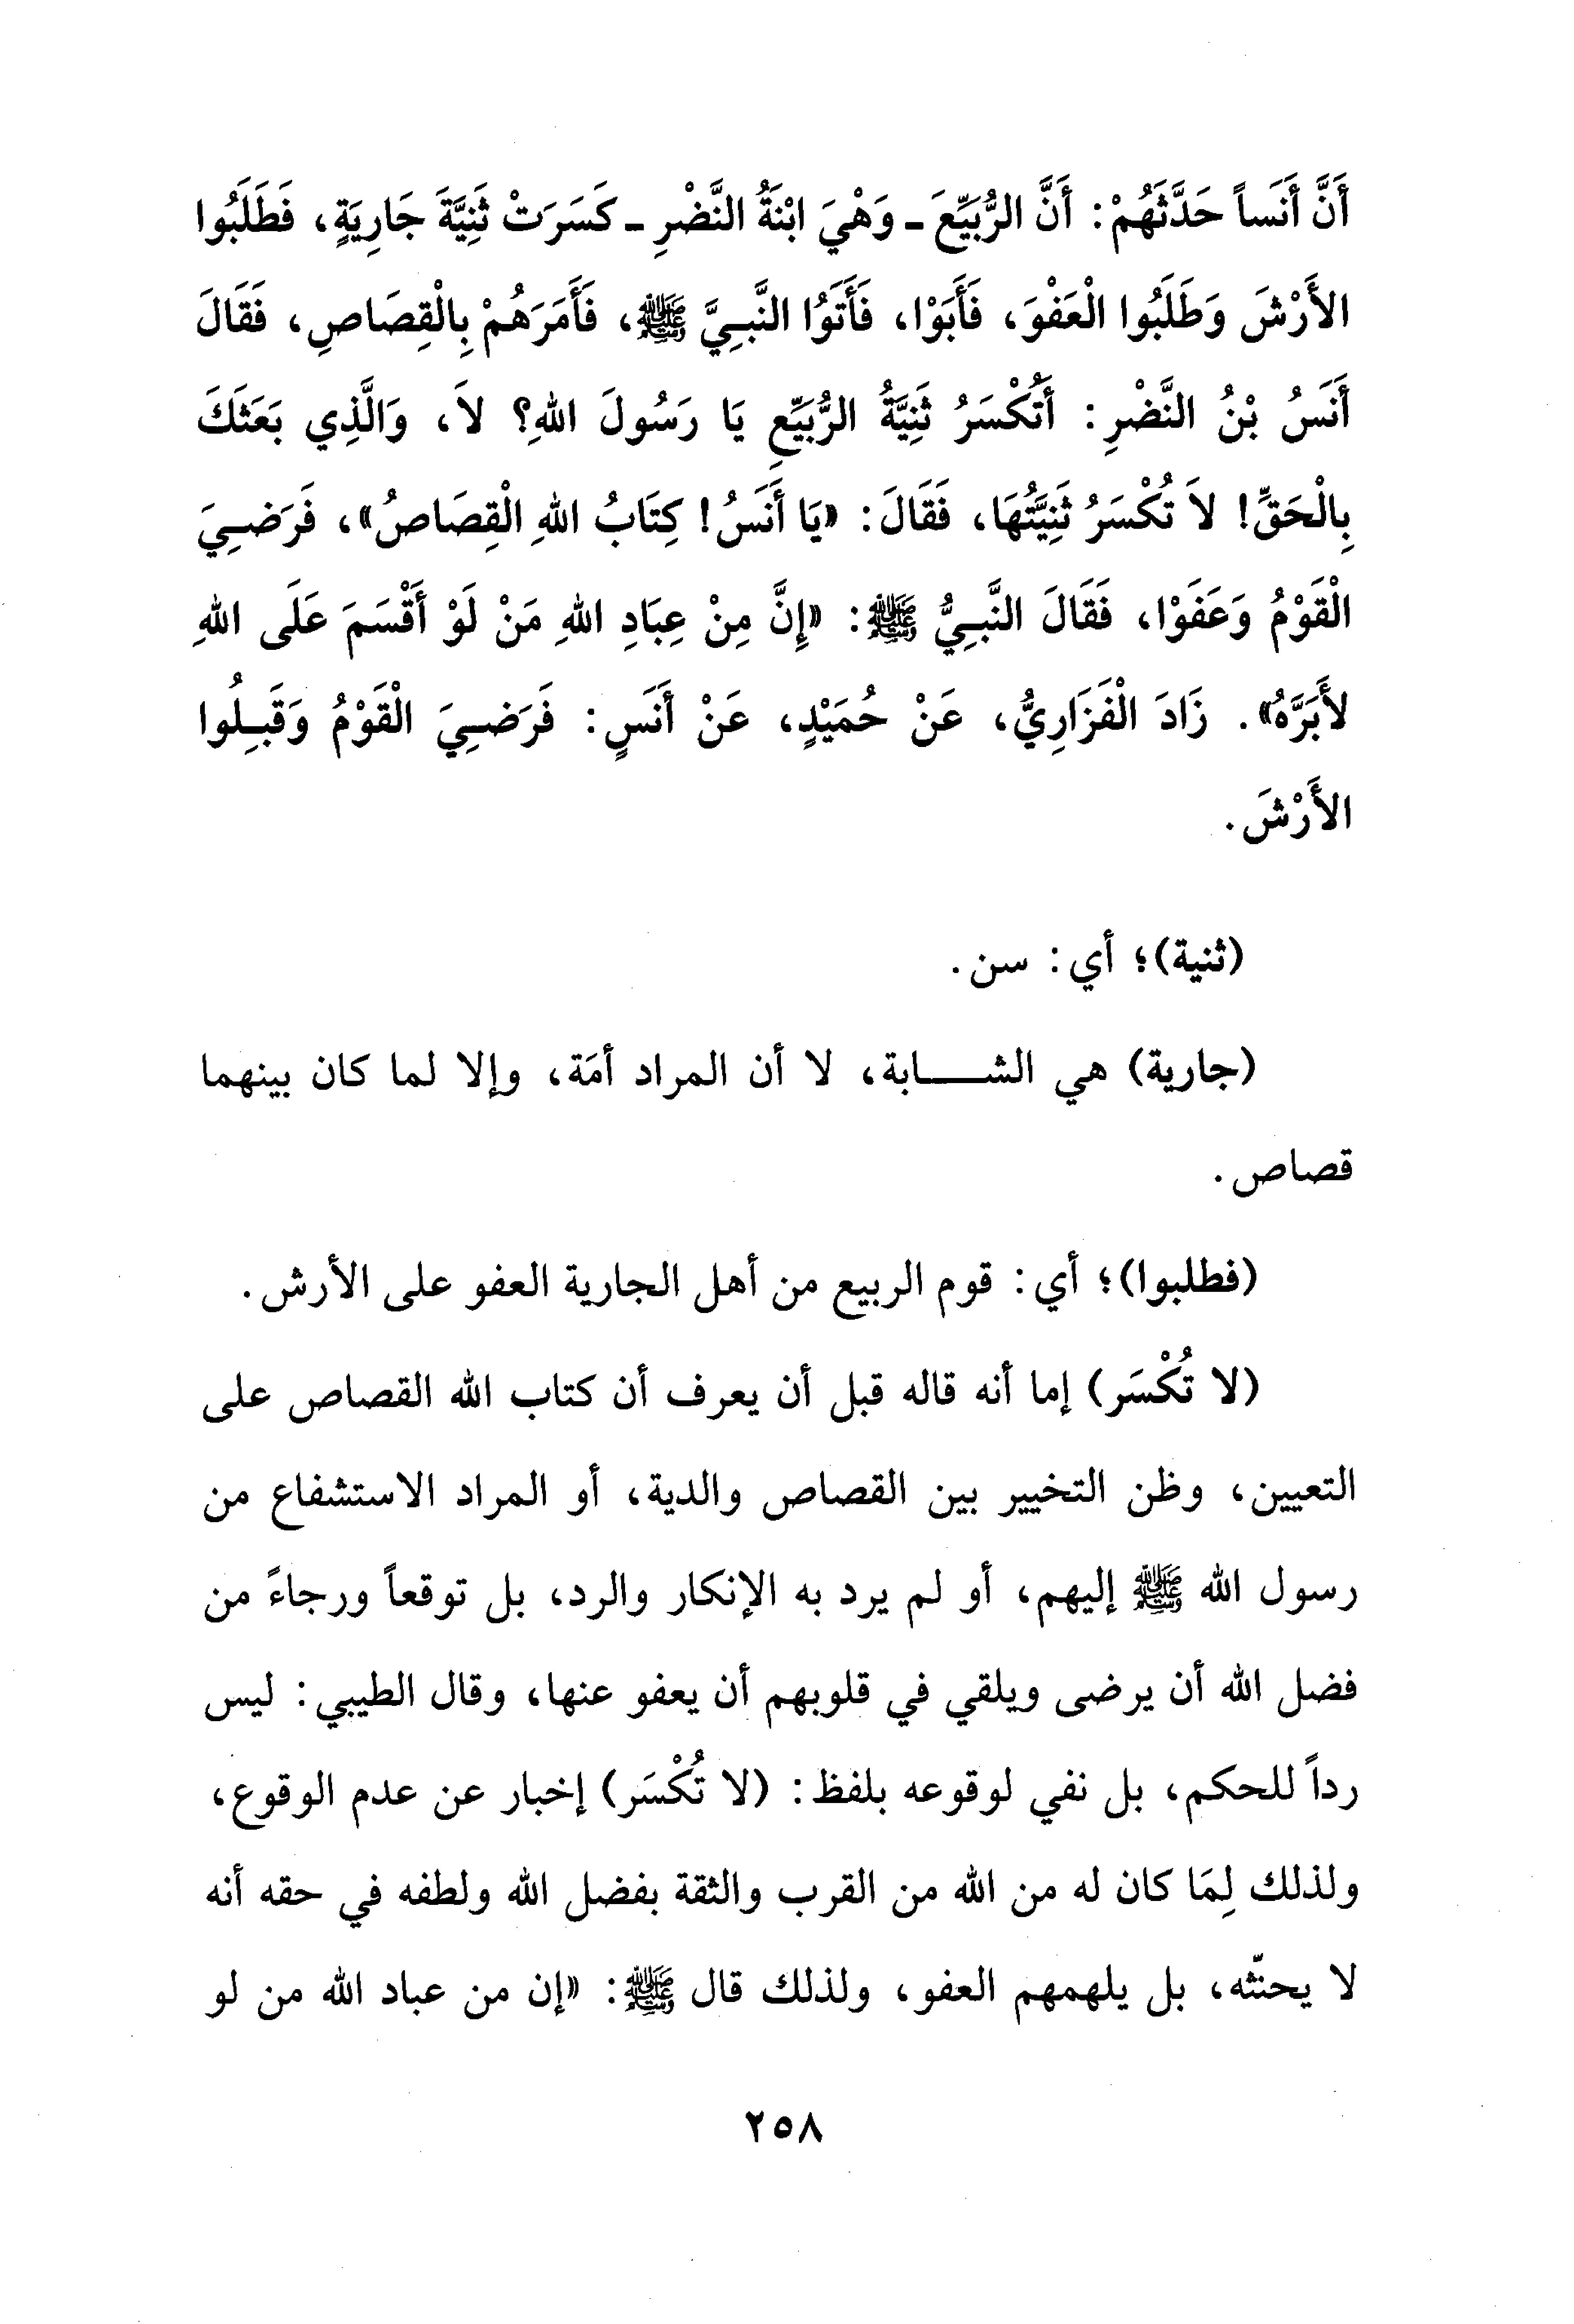 أَنَّ أَنَساً حَدَّثَهُمْ: أَنَّ الرُّبَيِّعَ ـ وَهْيَ ابْنَةُ النَّضْرِ ـ كَسَرَتْ ثَنِيَّةَ جَارِيَةٍ، فَطَلَبُوا
الأَرْشَ وَطَلَبُوا الْعَفْوَ، فَأَبَوْا، فَأَتَوُا النَّبِيَّ ﷺ، فَأَمَرَهُمْ بِالْقِصَاصِ، فَقَالَ
أَنَسُ بْنُ النَّضْرِ: أَتُكْسَرُ ثَنِيَّةُ الرُّبَيِّعِ يَا رَسُولَ اللهِ؟ لاَ، وَالَّذِي بَعَثَكَ
بِالْحَقِّ! لاَ تُكْسَرُ ثَنِيَّتُهَا، فَقَالَ: «يَا أَنَسُ! كِتَابُ اللهِ الْقِصَاصُ»، فَرَضِيَ
الْقَوْمُ وَعَفَوْا، فَقَالَ النَّبِيُّ ﷺ: «إِنَّ مِنْ عِبَادِ اللهِ مَنْ لَوْ أَقْسَمَ عَلَى اللهِ
لأَبَرَّهُ». زَادَ الْفَزَارِيُّ، عَنْ حُمَيْدٍ، عَنْ أَنَسٍ: فَرَضِيَ الْقَوْمُ وَقَبِلُوا
الأَرْشَ.
(ثنية)؛ أي: سن.
(جارية) هي الشـــابة، لا أن المراد أمَة، وإلا لما كان بينهما
قصاص.
(فطلبوا)؛ أي: قوم الربيع من أهل الجارية العفو على الأرش.
(لا تُكْسَر) إما أنه قاله قبل أن يعرف أن كتاب الله القصاص على
التعيين، وظن التخيير بين القصاص والدية، أو المراد الاستشفاع من
رسول الله ﷺ إليهم، أو لم يرد به الإنكار والرد، بل توقعاً ورجاءً من
فضل الله أن يرضى ويلقي في قلوبهم أن يعفو عنها، وقال الطيبي: ليس
رداً للحكم، بل نفي لوقوعه بلفظ: (لا تُكْسَر) إخبار عن عدم الوقوع،
ولذلك لِمَا كان له من الله من القرب والثقة بفضل الله ولطفه في حقه أنه
لا يحنّثه، بل يلهمهم العفو، ولذلك قال ﷺ: «إن من عباد الله من لو
٢٥٨